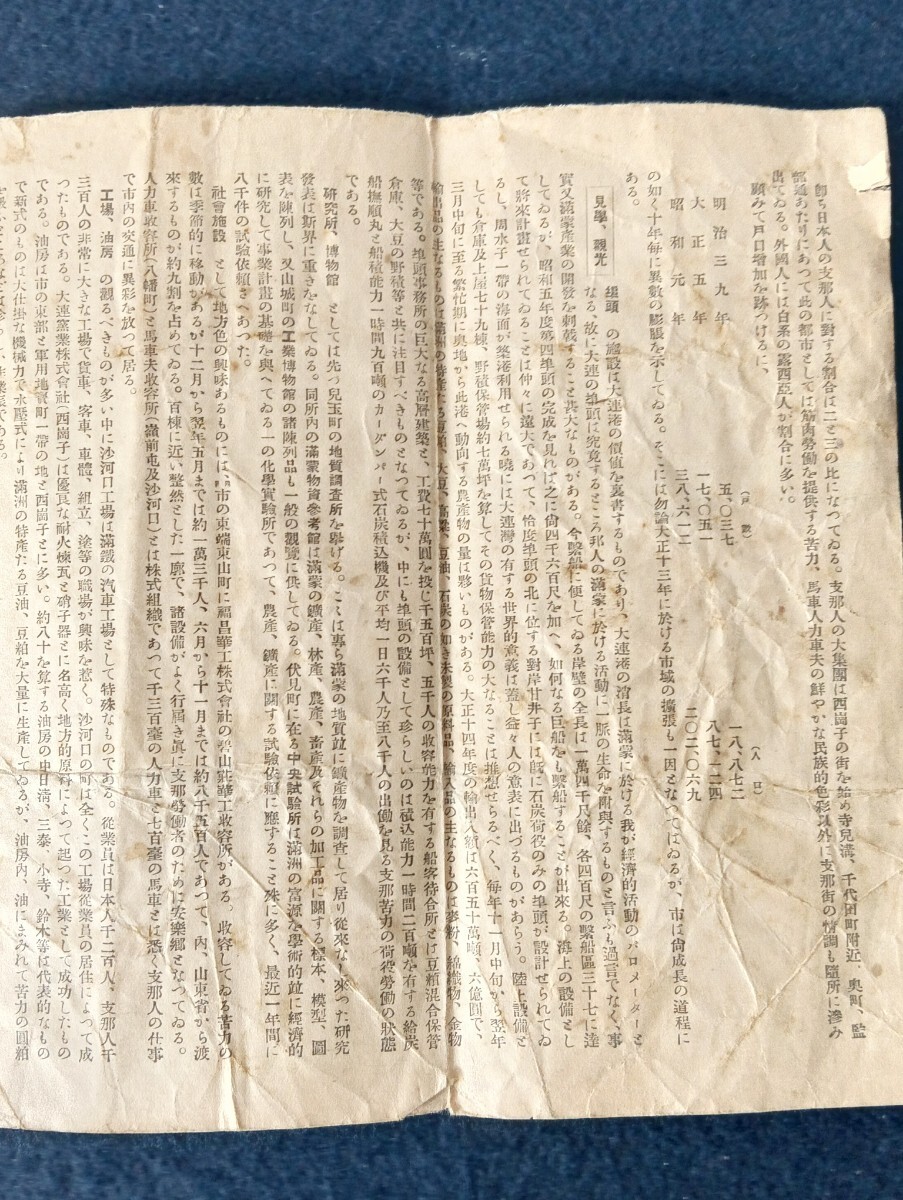 卽ち日本人の支那人に對する割合は二と三の比になつてゐる。支那人の大集團は西崗子の街を始め寺兒溝、千代田町附近、奧町、監
部通あたりにあつて此の都市としては筋肉勞働を提供する苦力、馬車人力車夫の鮮やかな民族的色彩以外に支那街の情調も隨所に滲み
出てゐる。外國人には白系の露西亞人が割合に多い。
顧みて戶口增加を跡づけるに、
（戶數）（人口）
明治三九年 五、〇三七 一八、八七二
大正五年 一七、〇五一 八七、一二四
昭和元年 三八、六一二 二〇二、〇六九
の如く十年每に異數の膨脹を示してゐる。そこには勿論大正十三年に於ける市域の擴張も一因となつてはゐるが、市は尙成長の道程に
ある。
見學、觀光
埠頭 の施設は大連港の價値を裏書するものであり、大連港の消長は滿蒙に於ける我が經濟的活動のバロメーターと
なる、故に大連の埠頭は究竟するところ邦人の滿蒙に於ける活動に一脈の生命を附與するものと言ふも過言でなく、事
實又滿蒙產業の開發を刺戟すること甚大なものがある。今繫船に便してゐる岸壁の全長は一萬四千尺餘、各四百尺の繫船區三十七に達
してゐるが、昭和五年度第四埠頭の完成を見れば之に尙四千六百尺を加へ、如何なる巨船をも繫船することが出來る。海上の設備とし
て將來計畫せられてゐることは仲々に遠大であつて、恰度埠頭の北に位する對岸甘井子には旣に石炭荷役のみの埠頭が設計せられてゐ
るし、周水子一帶の海面が築港利用せられる曉には大連灣の有する世界的意義は蓋し益々人の意表に出づるものがあらう。陸上設備と
しても倉庫及上屋七十九棟、野積保管場約七萬坪を算してその貨物保管能力の大なることは推想せらるべく、每年十一月中旬から翌年
三月中旬に至る繁忙期に奧地から此港へ動向する農產物の量は夥いものがある。大正十四年度の輸出入額は六百五十萬噸、六億圓で、
輸出品の主なるものは滿洲の特產たる豆粕、大豆、高粱、豆油、石炭の如き未製の原料品、輸入品の主なるものは麥粉、綿織物、金物
等である。埠頭事務所の巨大なる高層建築と、工費七十萬圓を投じ千五百坪、五千人の收容能力を有する船客待合所とは豆粕混合保管
倉庫、大豆の野積等と共に注目すべきものとなつてゐるが、中にも埠頭の設備として珍らしいのは積込能力一時間二百噸を有する給炭
船撫順丸と船積能力一時間九百噸のカーダンパー式石炭積込機及び平均一日六千人乃至八千人の出働を見る支那苦力の荷役勞働の狀態
である。
硏究所、博物館 としては先づ兒玉町の地質調查所を擧げる。こゝは專ら滿蒙の地質竝に鑛產物を調查して居り從來なし來つた硏究
發表は斯界に重きをなしてゐる。同所內の滿蒙物資參考館は滿蒙の鑛產、林產、農產、畜產及それらの加工品に關する標本、模型、圖
表を陳列し、又山城町の工業博物館の諸陳列品も一般の觀覽に供してゐる。伏見町に在る中央試驗所は滿洲の富源を學術的竝に經濟的
に硏究して事業計畫の基礎を與へてゐる一の化學實驗所であつて、農產、鑛產に關する試驗依賴に應ずること殊に多く、最近一年間に
八千件の試驗依賴さへあつた。
社會施設 として地方色の興味あるものには市の東端東山町に福昌華工株式會社の碧山莊華工收容所がある、收容してゐる苦力の
數は季節的に移動があるが十二月から翌年五月までは約一萬三千人、六月から十一月までは約八千五百人であつて、內、山東省から渡
來するものが約九割を占めてゐる。百棟に近い整然とした一廓で、諸設備がよく行屆き眞に支那勞働者のために安樂鄕となつてゐる。
人力車收容所（八幡町）と馬車夫收容所（嶺前屯及沙河口）とは株式組織であつて千三百臺の人力車と七百臺の馬車とは悉く支那人の仕事
で市內の交通に異彩を放つて居る。
工場、油房 の觀るべきものが多い中に沙河口工場は滿鐵の汽車工場として特殊なものである。從業員は日本人千二百人、支那人千
三百人の非常に大きな工場で貨車、客車、車體、組立、塗等の職場が興味を惹く。沙河口の町は全くこの工場從業員の居住によつて成
つたものである。大連窯業株式會社（西崗子）は優良な耐火煉瓦と硝子器とに名高く地方的原料によつて起つた工業として成功したもの
である。油房は市の東部と軍用地寶町一帶の地と西崗子とに多い。約八十を算する油房の中日淸、三泰、小寺、鈴木等は代表的なもの
で新式のものは大仕掛な機械力で水壓式により滿洲の特產たる豆油、豆粕を大量に生產してゐるが、油房內、油にまみれて苦力の圓粕